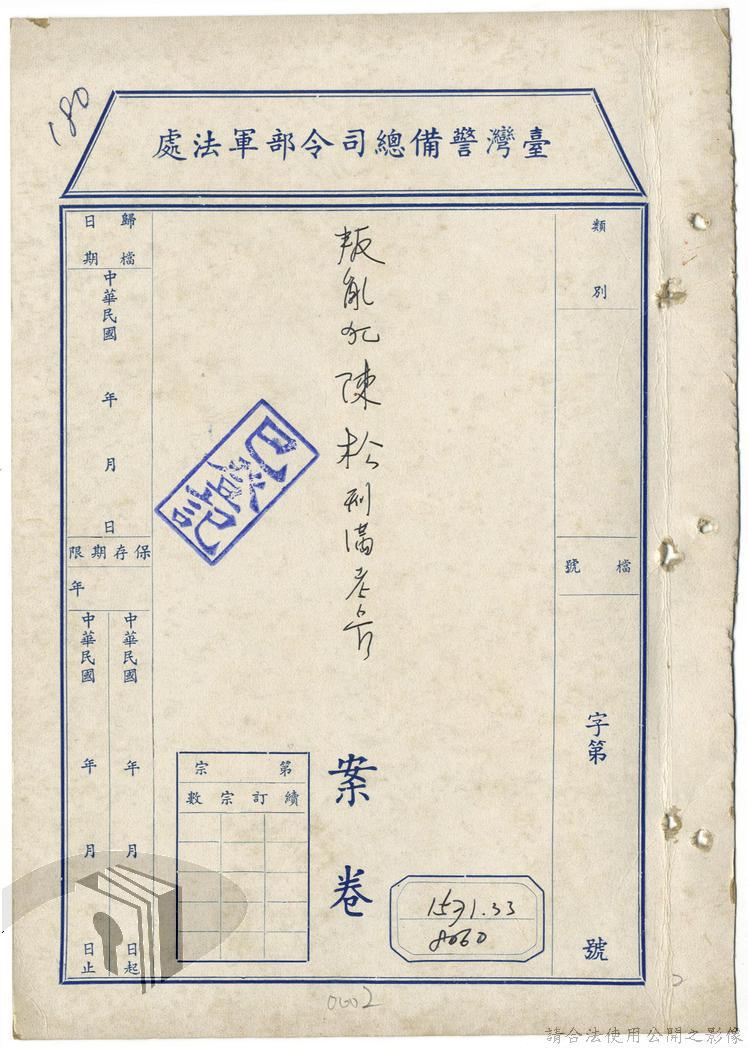 180
臺灣警備總司令部軍法處
類別
檔號
字第
號
叛亂犯陳松刑滿
案卷
已登記
1571.33
8060
第宗
續訂宗數
歸檔日期
中華民國年月日
保存期限
年
中華民國年月日起
中華民國年月日止
0002
請合法使用公開之影像